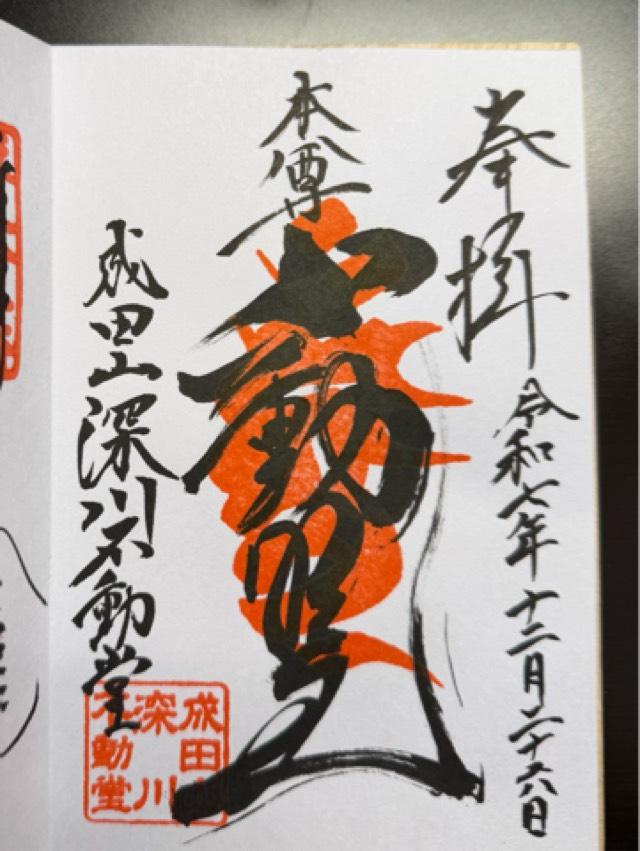 奉拝
令和七年十二月二十六日
本尊
不動明王
成田山深川不動堂
成田山
深川
不動堂